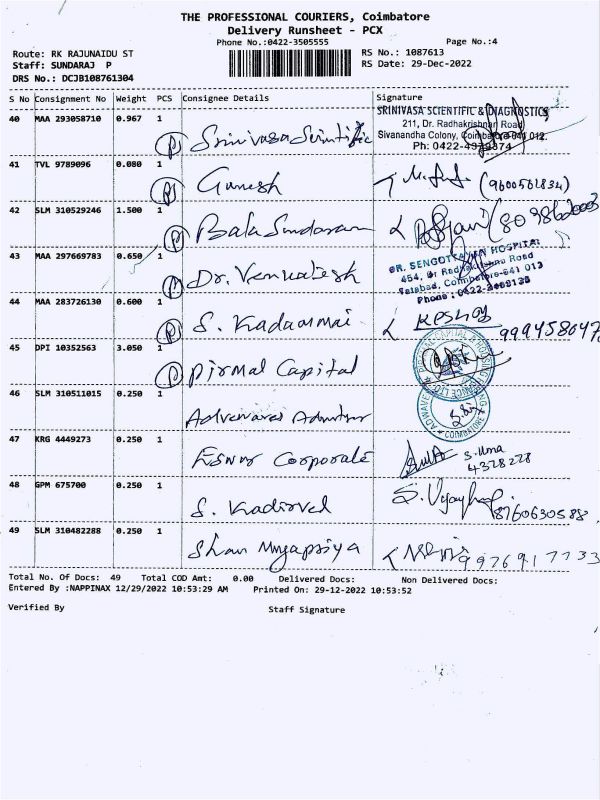 THE PROFESSIONAL COURIERS, Coimbatore
Delivery Runsheet - PCX
Phone No.:0422-3505555 Page No.:4
Route: RK RAJUNAIDU ST RS No.: 1087613
Staff: SUNDARAJ P RS Date: 29-Dec-2022
DRS No.: DCJB108761304
S No Consignment No Weight PCS Consignee Details Signature
40 MAA 293058710 0.967 1 Srinivasa Scintific SRINIVASA SCIENTIFIC & DIAGNOSTICS
211, Dr. Radhakrishnan Road
Sivanandha Colony, Coimbatore-641 012.
Ph: 0422-4979374
41 TVL 9789096 0.080 1 Ganesh (9600561834)
42 SLM 310529246 1.500 1 Bala Sundaram
43 MAA 297669783 0.650 1 Dr. Venkatesh DR. SENGOTTAIYAN HOSPITAL
454, Dr Radhakrishna Road
Tatabad, Coimbatore-641 012
Phone : 0422-
44 MAA 283726130 0.600 1 S. Kadammai
45 DPI 10352563 3.050 1 Pirmal Capital
46 SLM 310511015 0.250 1 COIMBATORE
47 KRG 4449273 0.250 1 Eswar Corporate S. Uma
4328228
48 GPM 675700 0.250 1 S. Kadirvel 8760630588
49 SLM 310482288 0.250 1 Shan 9976917733
Total No. Of Docs: 49 Total COD Amt: 0.00 Delivered Docs: Non Delivered Docs:
Entered By :NAPPINAX 12/29/2022 10:53:29 AM Printed On: 29-12-2022 10:53:52
Verified By Staff Signature